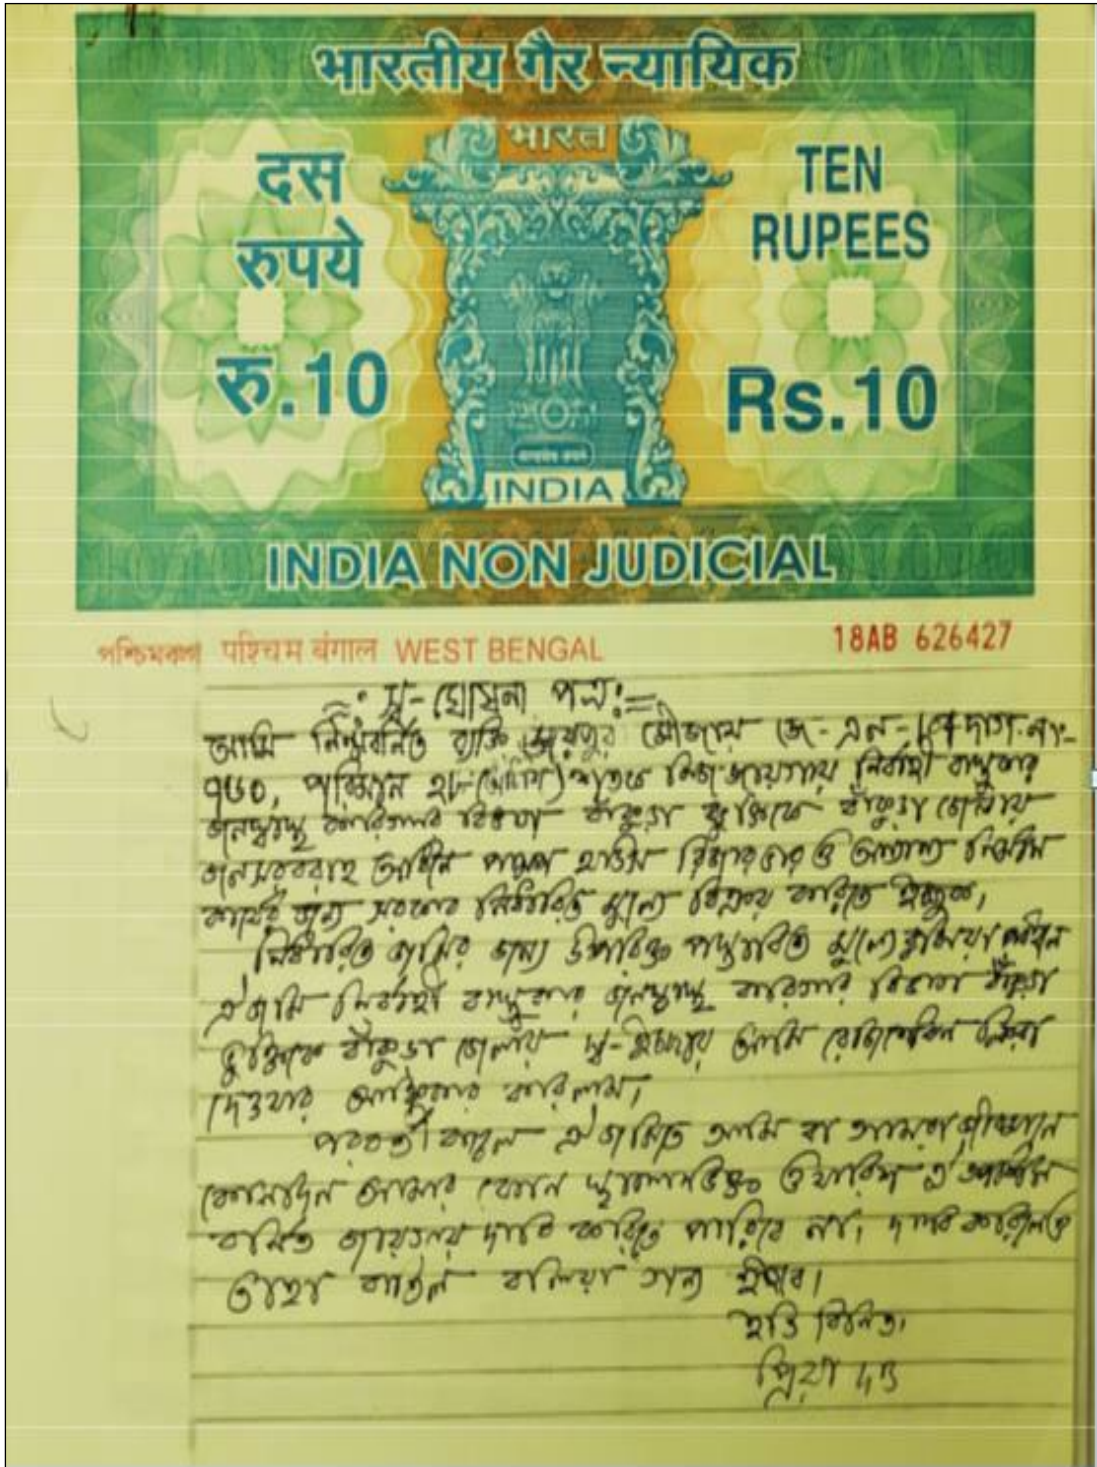 भारतीय गैर न्यायिक
भारत
दस
रुपये
रु.10
TEN
RUPEES
Rs.10
सत्यमेव जयते
INDIA
INDIA NON JUDICIAL
পশ্চিমবঙ্গ पश्चिम बंगाल WEST BENGAL
18AB 626427
স্ব-ঘোষনা পত্র:=
আমি নিম্নবর্নিত ব্যক্তি জয়পুর মৌজায় জে-এল- দাগ-নং-
৭৬০, পরিমান ২৮ শতক নিজ জায়গায় নির্বাহী বাস্তুকার
জনস্বাস্থ্য কারিগরি বিভাগ বাঁকুড়া বাঁকুড়া জেলায়
জলসরবরাহ পাম্প হাউস রিজার্ভার ও অন্যান্য নির্মান
কার্যের জন্য সরকার নির্ধারিত মূল্যে বিক্রয় করিতে ইচ্ছুক।
নির্ধারিত জমির জন্য মূল্যে
ঐ জমি নির্বাহী বাস্তুকার জনস্বাস্থ্য কারিগরি বিভাগ বাঁকুড়া
বাঁকুড়া জেলায় স্ব-ইচ্ছায় আমি
দেওয়ার অঙ্গিকার করিলাম।
পরবর্তী কালে ঐ জমিতে আমি বা আমার
কোনদিন আমার কোন স্থলাভিষিক্ত ওয়ারিশ ঐ
বর্নিত জায়গায় দাবি করিতে পারিবে না। দাবি করিলেও
তাহা বাতিল বলিয়া গন্য হইবে।
ইতি বিনিত।
প্রিয়া